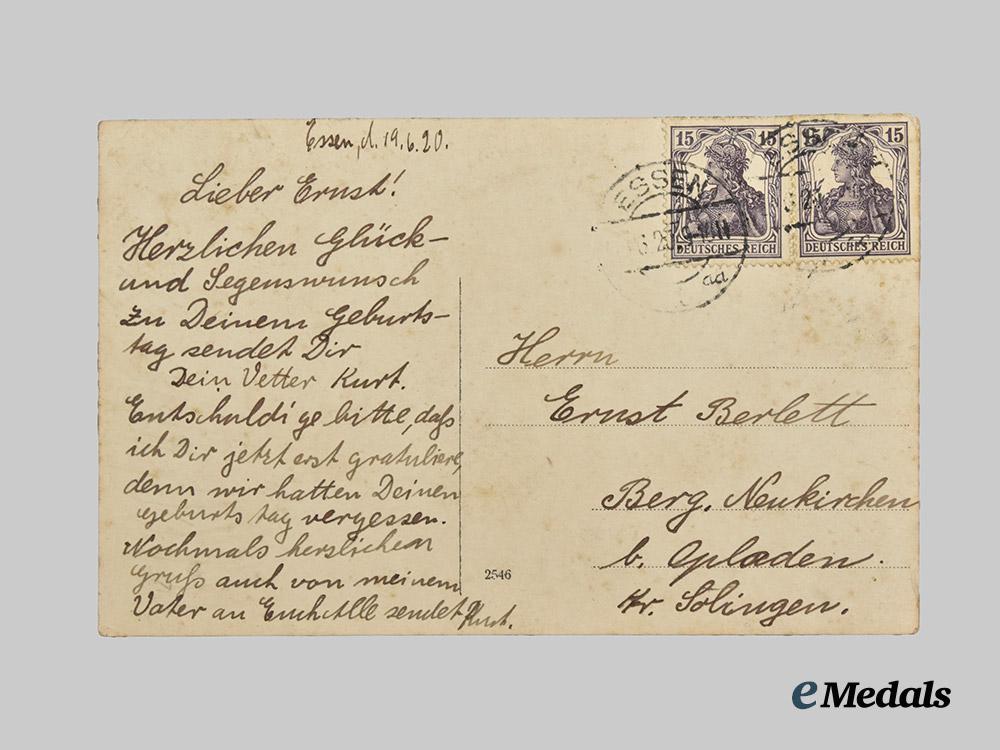 Essen, d. 19.6.20.
Lieber Ernst!
Herzlichen Glück-
und Segenswunsch
zu Deinem Geburts-
tag sendet Dir
Dein Vetter Kurt.
Entschuldige bitte, daß
ich Dir jetzt erst gratuliere,
denn wir hatten Deinen
Geburtstag vergessen.
Nochmals herzlichen
Gruß auch von meinem
Vater an Euch Alle sendet Kurt.
15 15
DEUTSCHES REICH
15 15
DEUTSCHES REICH
ESSEN
ad
Herrn
Ernst Berlett
Berg. Neukirchen
b. Opladen.
Kr. Solingen.
2546
eMedals